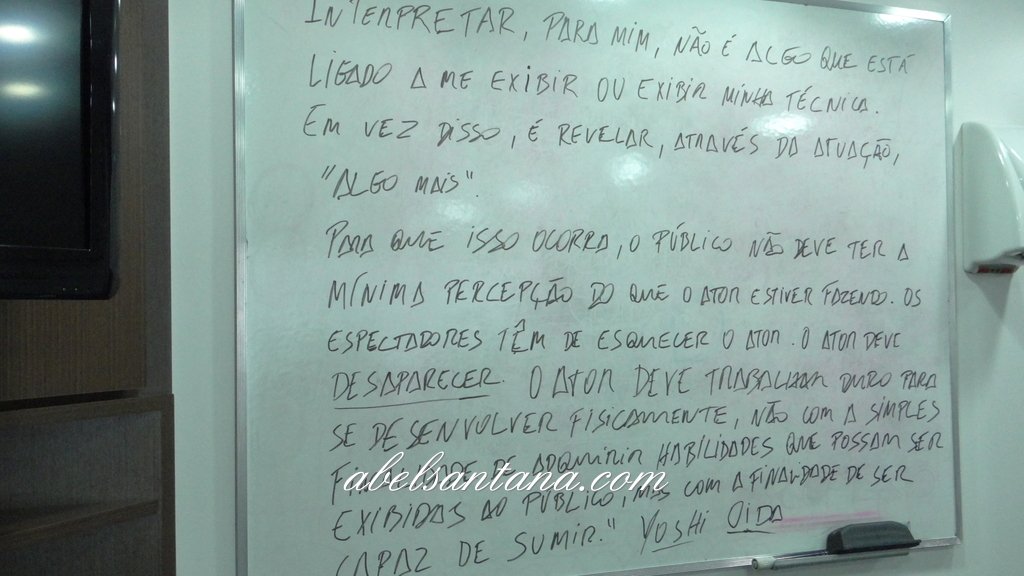 INTERPRETAR, PARA MIM, NÃO É ALGO QUE ESTÁ
LIGADO A ME EXIBIR OU EXIBIR MINHA TÉCNICA.
EM VEZ DISSO, É REVELAR, ATRAVÉS DA ATUAÇÃO,
"ALGO MAIS".
PARA QUE ISSO OCORRA, O PÚBLICO NÃO DEVE TER A
MÍNIMA PERCEPÇÃO DO QUE O ATOR ESTIVER FAZENDO. OS
ESPECTADORES TÊM DE ESQUECER O ATOR. O ATOR DEVE
DESAPARECER. O ATOR DEVE TRABALHAR DURO PARA
SE DESENVOLVER FISICAMENTE, NÃO COM A SIMPLES
FINALIDADE DE ADQUIRIR HABILIDADES QUE POSSAM SER
abelsantana.com
EXIBIDAS AO PÚBLICO, MAS COM A FINALIDADE DE SER
CAPAZ DE SUMIR." YOSHI OIDA